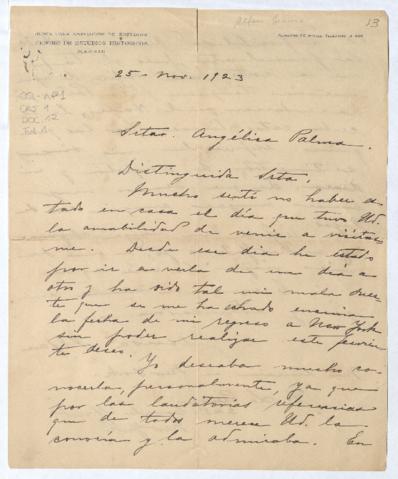 13
JUNTA PARA AMPLIACIÓN DE ESTUDIOS
CENTRO DE ESTUDIOS HISTORICOS
MADRID
25 - Nov. 1923
Srta. Angélica Palma.
Distinguida Srta:
Mucho sentí no haber es-
tado en casa el día que tuvo Ud.
la amabilidad de venir a visitar
me. Desde ese día he estado
por ir a verla de un día a
otro y ha sido tal mi mala suer-
te que se me ha echado encima
la fecha de mi regreso a New York
sin poder realizar este
deseo.
Yo deseaba mucho co-
nocerla, personalmente, ya que
por las laudatorias referencias
que de todos merece Ud. la
conocía y la admiraba. En